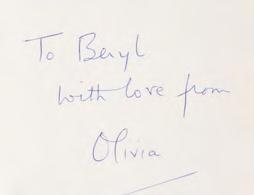 To Beryl
with love from
Olivia